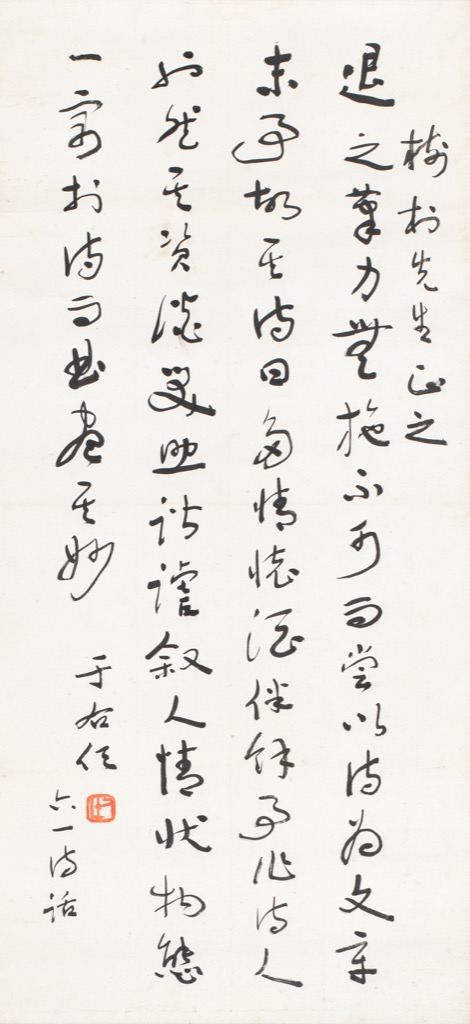 樹村先生正之
退之筆力無施不可而嘗以詩為文章
末事故其詩曰多情懷酒伴餘事作詩人
也然其資談笑助諧謔叙人情狀物態
一寓於詩而曲盡其妙
于右任
六一詩話